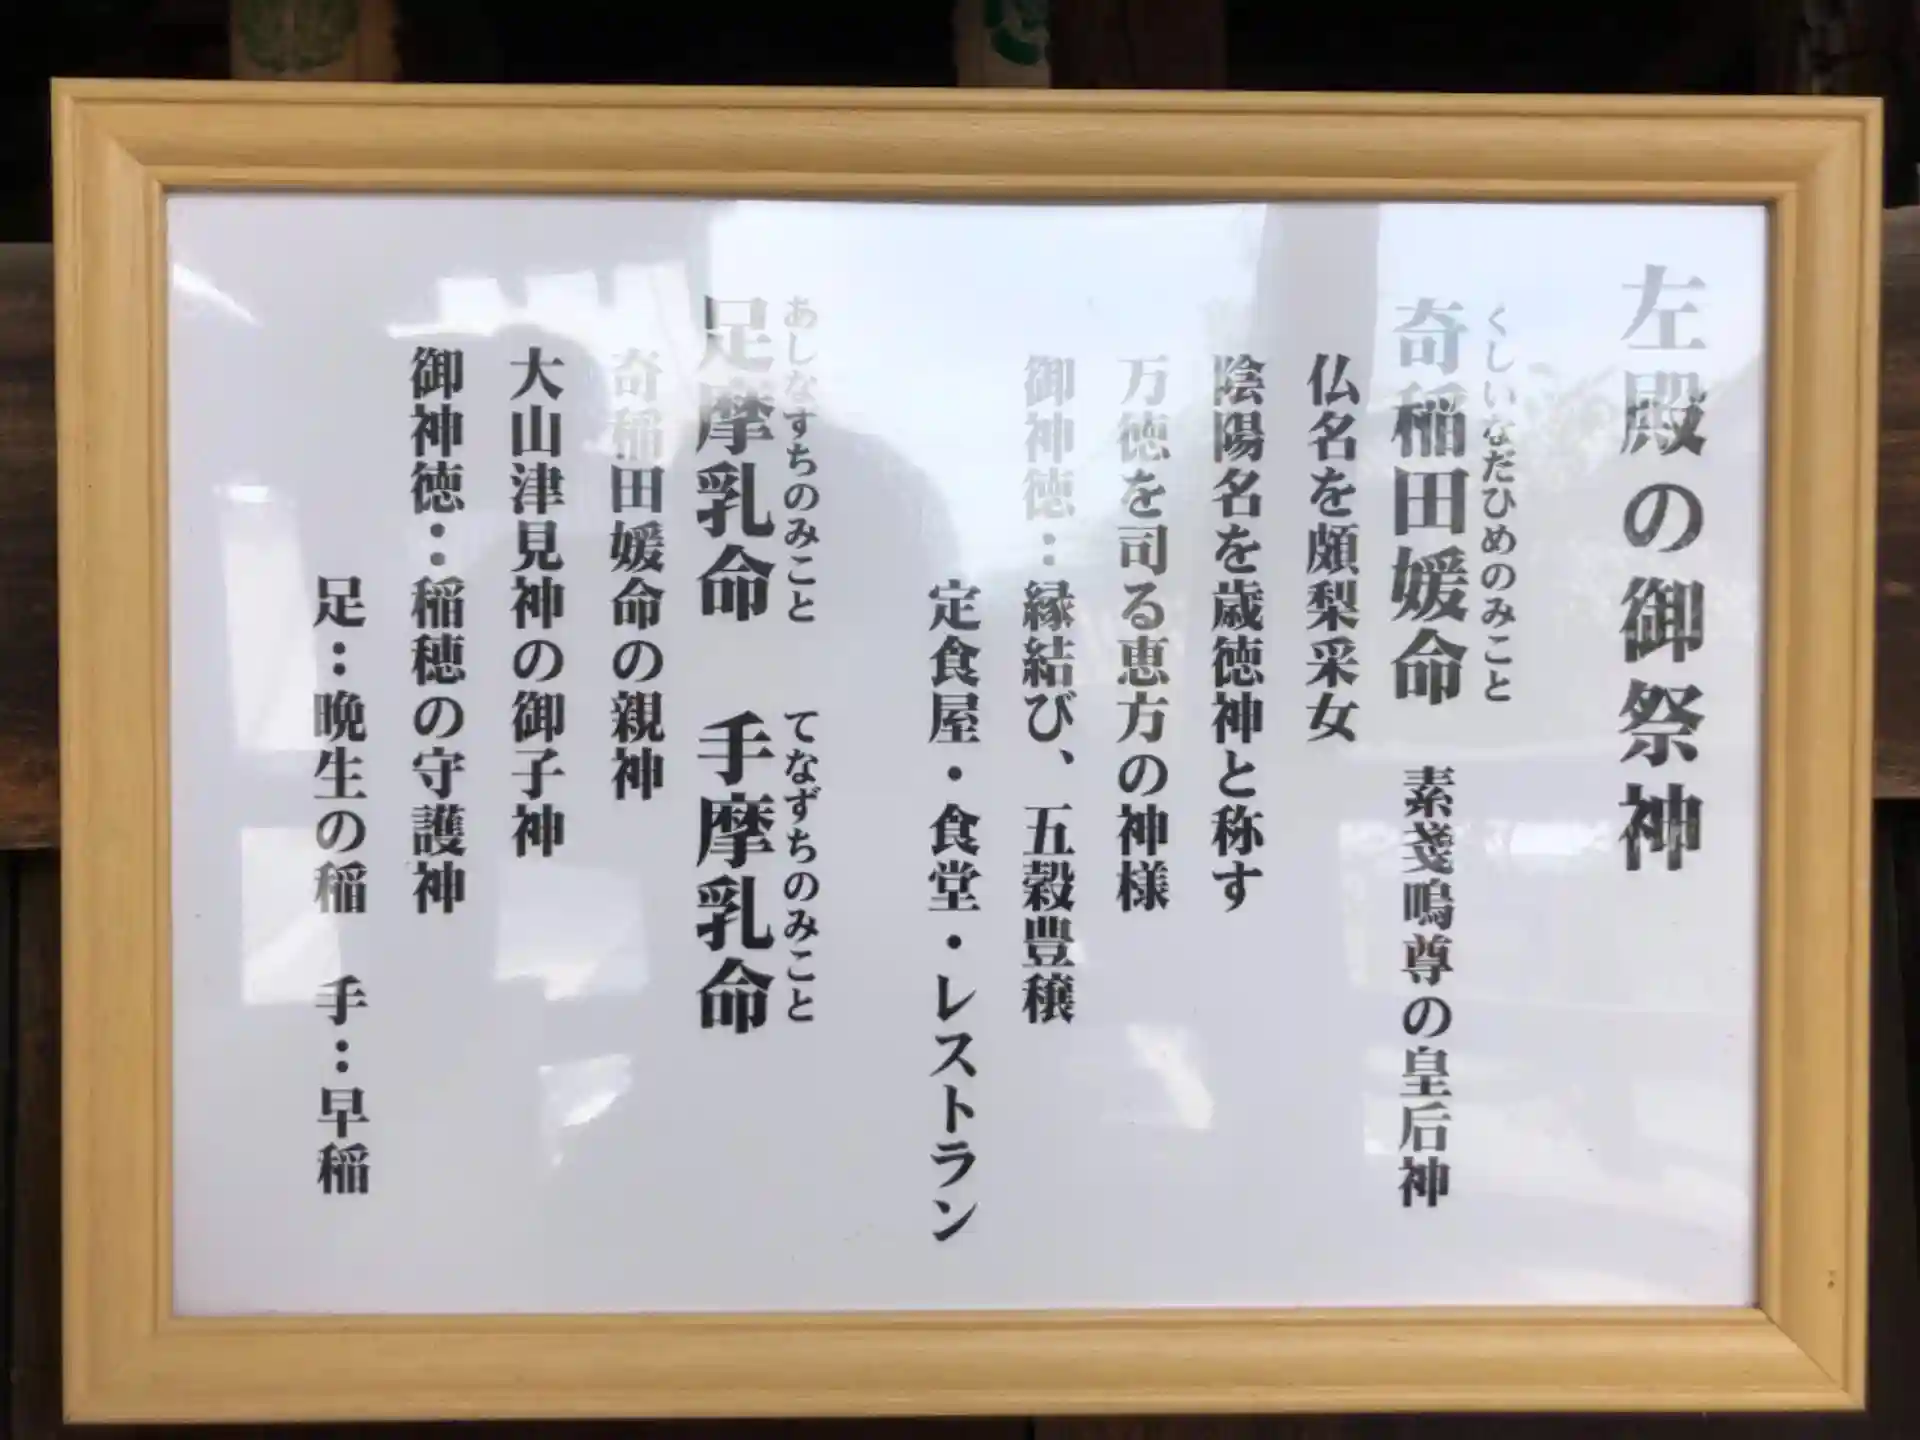 左殿の御祭神
くしいなだひめのみこと
奇稲田媛命　素戔嗚尊の皇后神
仏名を頗梨采女
陰陽名を歳徳神と称す
万徳を司る恵方の神様
御神徳：縁結び、五穀豊穣
定食屋・食堂・レストラン
あしなすちのみこと　てなずちのみこと
足摩乳命　手摩乳命
奇稲田媛命の親神
大山津見神の御子神
御神徳：稲穂の守護神
足：晩生の稲　手：早稲